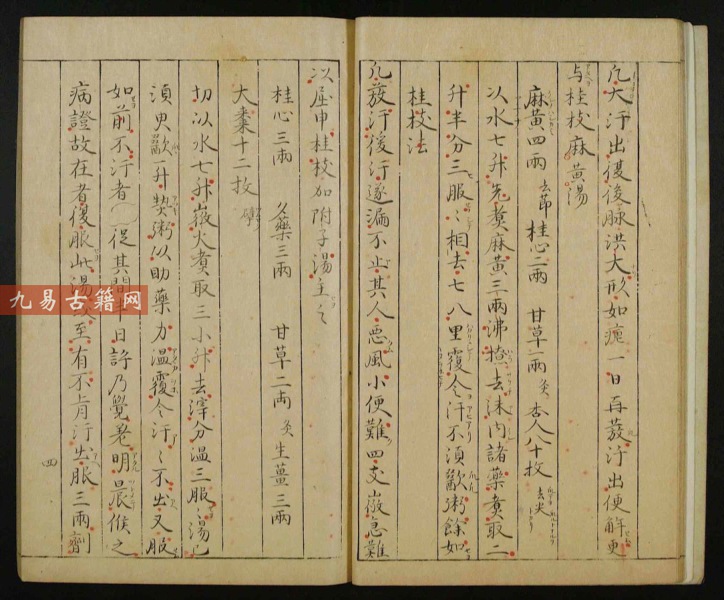 凡大汗出復後脉洪大形如瘧一日再發汗出便解更
与桂枝麻黄湯
麻黄四兩去節 桂心二兩 甘草一兩炙 杏人八十枚去尖
以水七升先煑麻黄三兩沸掠去沫内諸藥煑取二
升半分三服〻相去七八里覆令汗不須歠粥餘如
桂枝法
凡發汗後汗遂漏不止其人惡風小便難四支微急難
以屈申桂枝加附子湯主之
桂心三兩 勺藥三兩 甘草二兩炙 生薑三兩
大棗十二枚擘
切以水七升微火煑取三小升去滓分温三服〻湯已
須臾歠一升粥以助藥力温覆令汗〻不出又服
如前不汗者 從其間半日許乃覺差明晨候之
病證故在者復服此湯 至有不肯汗出服三兩劑
四
九易古籍网